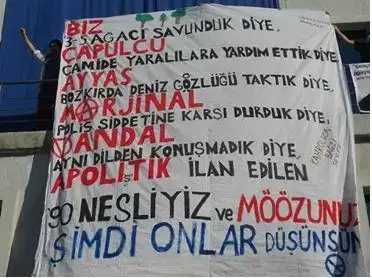 BİZ
3-5 AĞACI SAVUNDUK DİYE,
ÇAPULCU
CAMİDE YARALILARA YARDIM ETTİK DİYE
AYYAŞ
BOZKIRDA DENİZ GÖZLÜĞÜ TAKTIK DİYE,
MARJİNAL
POLİS ŞİDDETİNE KARŞI DURDUK DİYE,
VANDAL
AYNI DİLDEN KONUŞMADIK DİYE,
APOLİTİK İLAN EDİLEN
90 NESLİYİZ ve MÖÖZÜNUZ
ŞİMDİ ONLAR DÜŞÜNSÜN